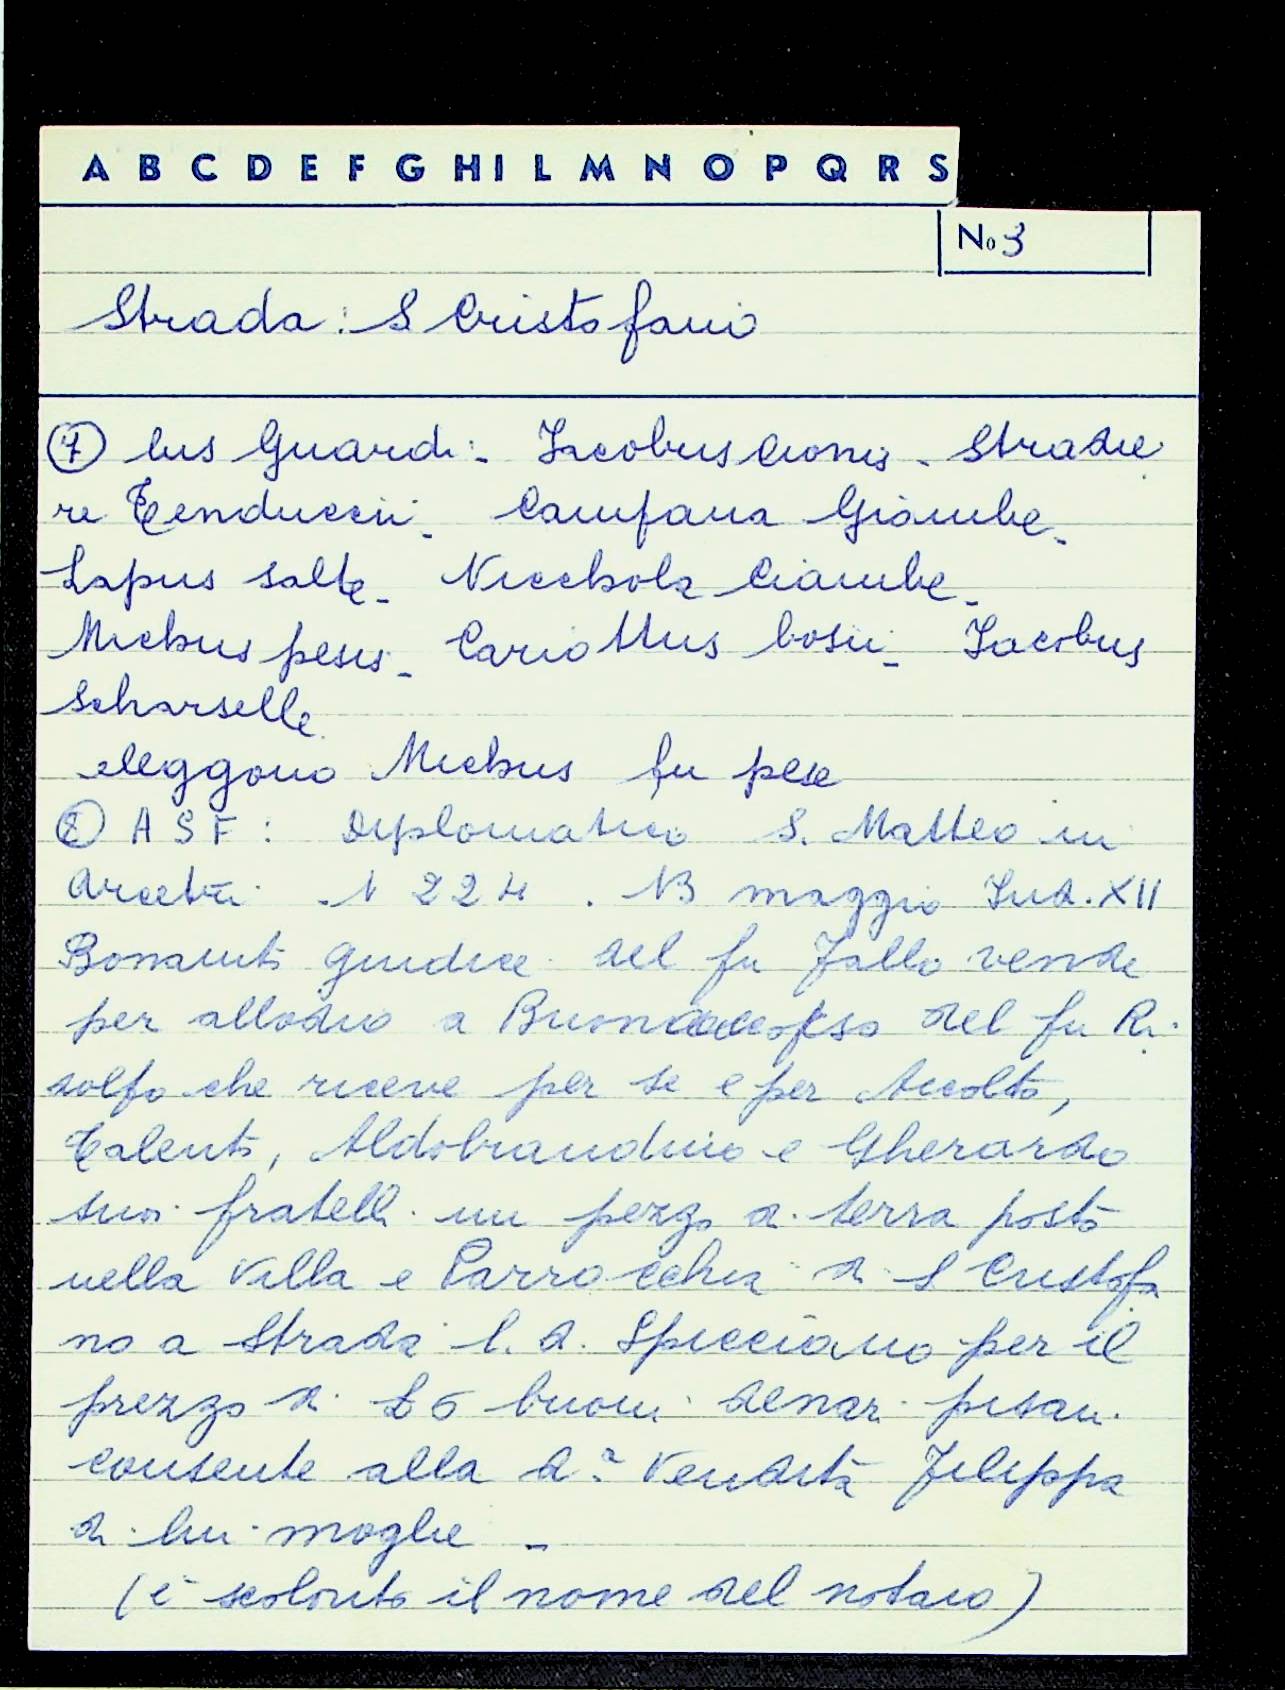 A B C D E F G H I L M N O P Q R S
No 3
Strada: S Cristofano
⑦ lus Guardi - Jacobus Cionis - Stradie
re Tenduccii - Campana Giambe -
Lapus salte - Nicchola Ciambe -
Michus pesis - Cariottus bosii - Jacobus
Scharselle
eleggono Michus fu pese
⑧ ASF: Diplomatico S. Matteo in
Arcetri N 224. 13 maggio Ind. XII
Bonaiuti giudice del fu Fallo vende
per allodio a del fu Ri
solfo che riceve per se e per Accolto,
Talenti, Aldobrandino e Gherardo
suoi fratelli un pezzo di terra posto
nella Villa e Parrocchia di S Cristofa
no a Strada l. d. Spicciano per il
prezzo di £ 6 buoni denari pisani
consente alla d.ª Vendita Filippa
di lui moglie -
(è scolorito il nome del notaio)